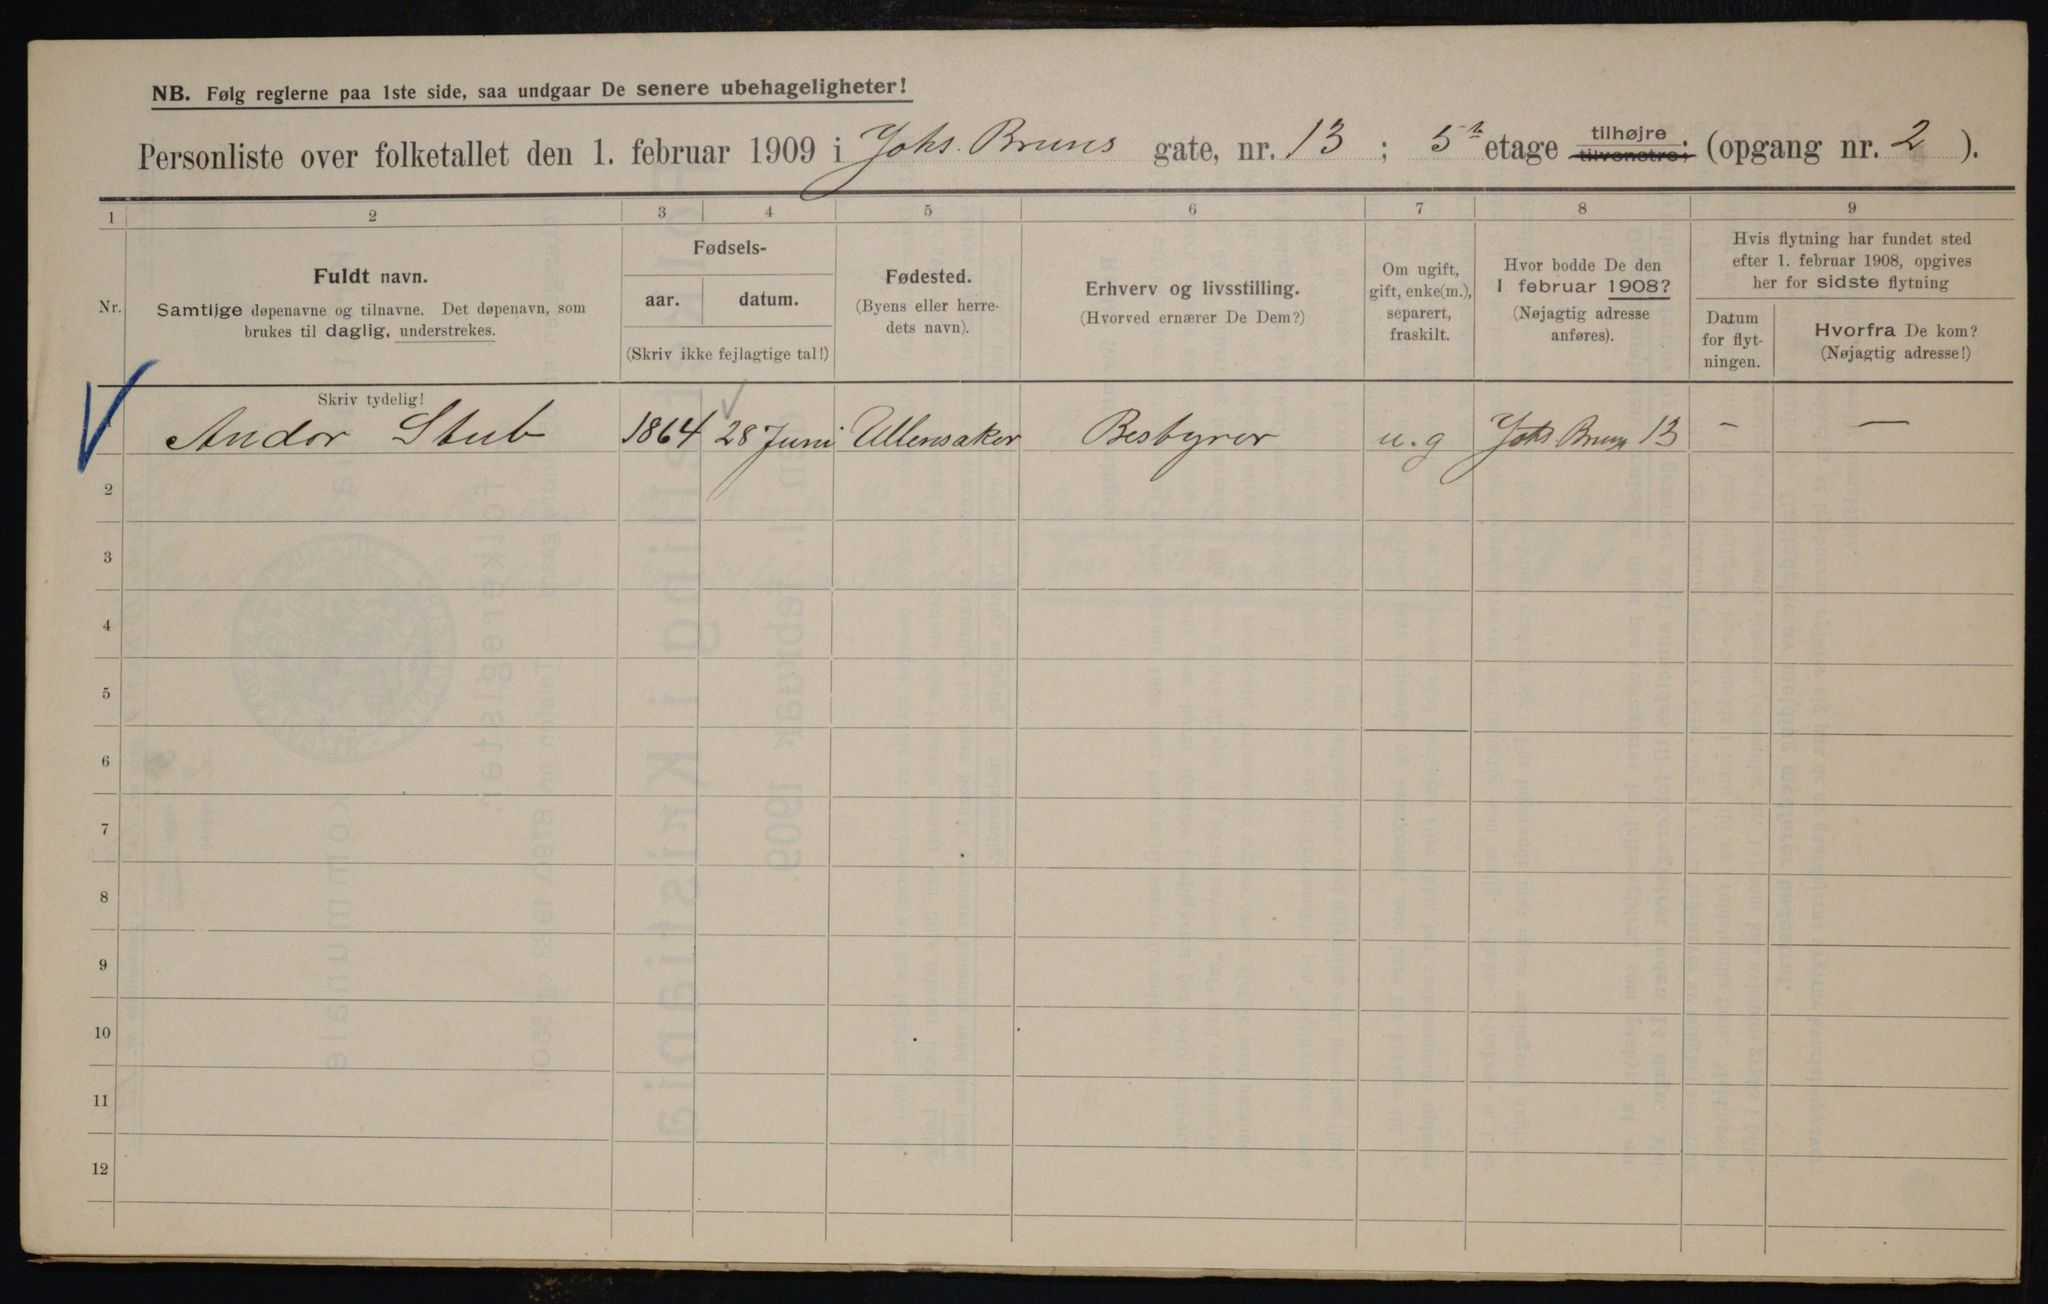 NB. Følg reglerne paa 1ste side, saa undgaar De senere ubehageligheter!
Personliste over folketallet den 1. februar 1909 i Johs. Bruns gate, nr. 13 ; 5th etage tilhøjre tilvenstre; (opgang nr. 2 ).
1 2 3 4 5 6 7 8 9
Nr.
Fuldt navn.
Samtlige døpenavne og tilnavne. Det døpenavn, som
brukes til daglig, understrekes.
Fødsels-
aar. datum.
(Skriv ikke fejlagtige tal!)
Fødested.
(Byens eller herre-
dets navn).
Erhverv og livsstilling.
(Hvorved ernærer De Dem?)
Om ugift,
gift, enke(m.),
separert,
fraskilt.
Hvor bodde De den
1 februar 1908?
(Nøjagtig adresse
anføres).
Hvis flytning har fundet sted
efter 1. februar 1908, opgives
her for sidste flytning
Datum
for flyt-
ningen.
Hvorfra De kom?
(Nøjagtig adresse!)
Skriv tydelig!
Andor Stub 1864 28 Juni Ullensaker Bestyrer u.g Johs Bruns 13 – —
2
3
4
5
6
7
8
9
10
11
12